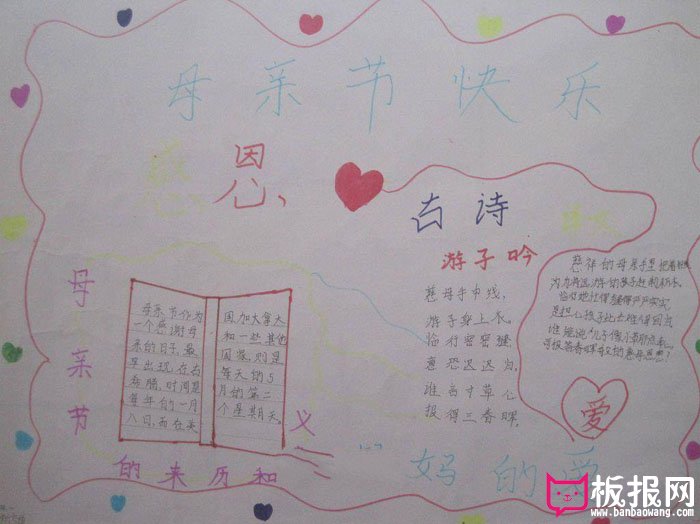 母亲节快乐
感恩
古诗
游子吟
慈母手中线，
游子身上衣。
临行密密缝
意恐迟迟归，
谁言寸草心
报得三春晖，
慈祥的母亲手里把着
为为将远游的孩子赶制新衣。
临行她忙得缝得严严实实
是担心孩子此去难得回归
谁能说
母亲节
母亲节作为
一个感谢母
亲的日子，最
早出现在古
希腊，时间是
每年的一月
八日，而在美
国、加大拿大
和一些其他
国家，则是
每天的5
月的第二
个星期天。
的来历和
义
妈的爱
爱
板报网
www.banbaowang.com